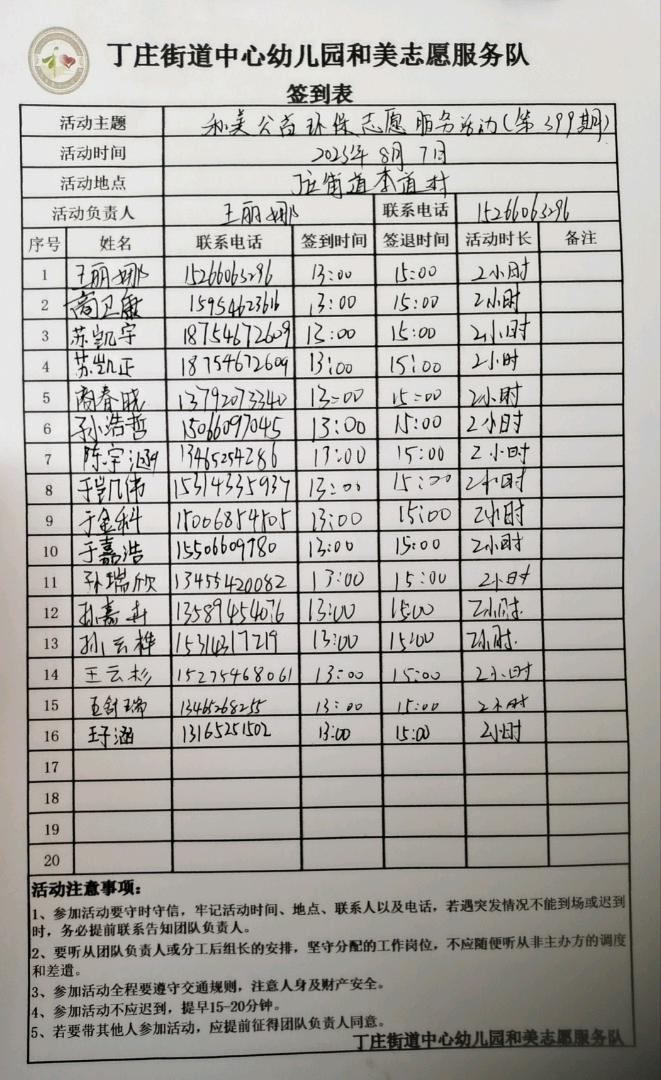 丁庄街道中心幼儿园和美志愿服务队
签到表
活动主题 和美公益环保志愿服务活动(第399期)
活动时间 2023年8月7日
活动地点 丁庄街道李道村
活动负责人 王丽娜 联系电话 15266063296
序号 姓名 联系电话 签到时间 签退时间 活动时长 备注
1 王丽娜 15266063296 13:00 15:00 2小时
2 商卫康 15954623616 13:00 15:00 2小时
3 苏凯宇 18754672609 13:00 15:00 2小时
4 苏凯正 18754672609 13:00 15:00 2小时
5 商春晓 13792073340 13:00 15:00 2小时
6 孙浩哲 15066097045 13:00 15:00 2小时
7 陈宇涵 13465254286 13:00 15:00 2小时
8 于凯伟 15314335937 13:00 15:00 2小时
9 于金科 15006854505 13:00 15:00 2小时
10 于嘉浩 15506609780 13:00 15:00 2小时
11 孙瑞欣 13455420082 13:00 15:00 2小时
12 孙嘉卉 13589454076 13:00 15:00 2小时
13 孙云桦 15314317219 13:00 15:00 2小时
14 王云杉 15275468061 13:00 15:00 2小时
15 13465268255 13:00 15:00 2小时
16 王子涵 13165251502 13:00 15:00 2小时
17
18
19
20
活动注意事项:
1、参加活动要守时守信，牢记活动时间、地点、联系人以及电话，若遇突发情况不能到场或迟到
时，务必提前联系告知团队负责人。
2、要听从团队负责人或分工后组长的安排，坚守分配的工作岗位，不应随便听从非主办方的调度
和差遣。
3、参加活动全程要遵守交通规则，注意人身及财产安全。
4、参加活动不应迟到，提早15-20分钟。
5、若要带其他人参加活动，应提前征得团队负责人同意。
丁庄街道中心幼儿园和美志愿服务队